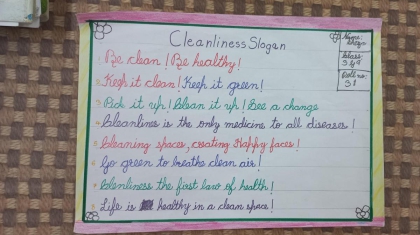 Cleanliness Slogan
Name:
Class
Roll no:
1 Be clean! Be healthy!
2 Keep it clean! Keep it green!
3 Pick it up! Clean it up! See a change
4 Cleanlines is the only medicine to all diseases!
5 Cleaning spaces, creating Happy faces!
6 Go green to breathe clean air!
7 Clenliness the first law of health!
8 Life is healthy in a clean space!